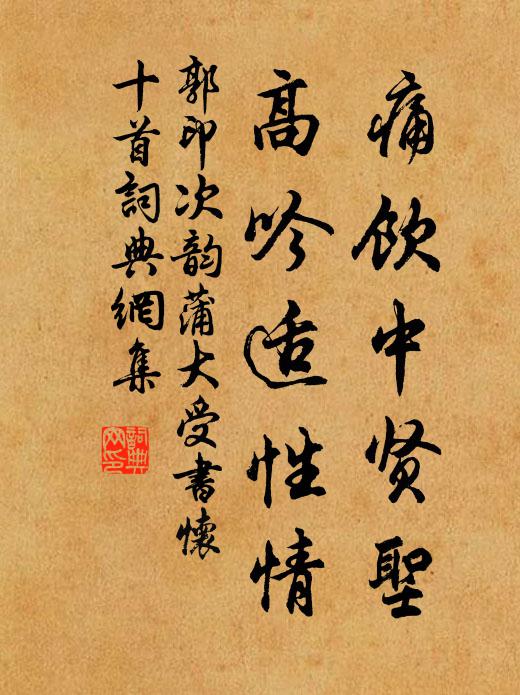 痛飲中贤聖
高吟适性情
郭印次韵蒲大受書懷
十首詞典網集
詞典
网印